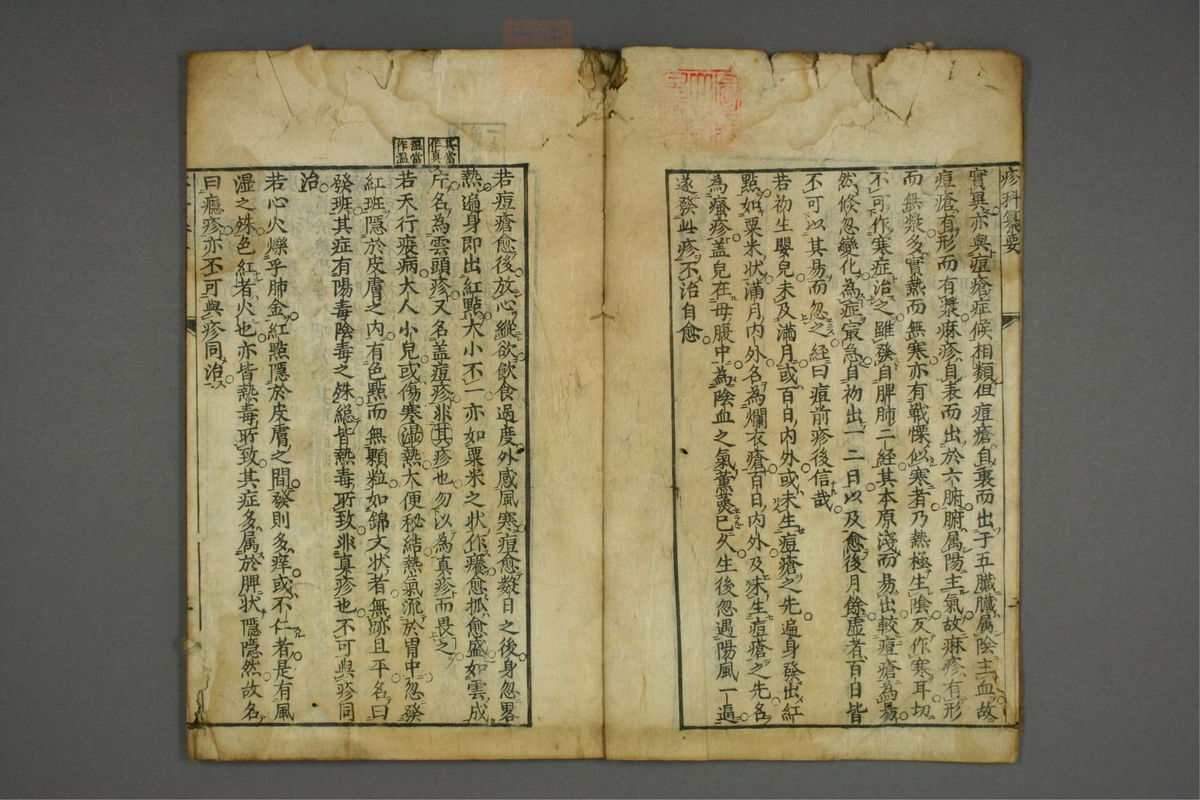 疹科纂要
實異亦與痘瘡症候相類但痘瘡自裏而出于五臟臟属陰主血故
痘瘡有形而有漿麻疹自表而出於六腑腑属陽主氣故麻疹有形
而無漿多實熱而無寒亦有戰慄似寒者乃熱極生陰反作寒耳切
不可作寒症治之雖發自脾肺二経其本原淺而易出較痘瘡為易
然倏忽變化為症冣急自初出一二日以及愈後月餘虚者百日皆
不可以其易而忽之経曰痘前疹後信哉
若初生嬰児未及滿月或百日内外或未生痘瘡之先遍身發出紅
點如粟米状滿月内外名為爛衣瘡百日内外及未生痘瘡之先名
為瘙疹盖兒在母腹中為陰血之氣薰蒸已久生後忽遇陽風一逼
遂發此疹不治自愈
其當作真
濕當作溫
若痘瘡愈後放心縱欲飲食過度外感風寒痘愈数日之後身忽畧
熱遍身即出紅點大小不一亦如粟米之状作癢愈抓愈盛如雲成
片名為雲頭疹又名盖痘疹非其疹也勿以為真疹而畏之
若天行疫病大人小兒或傷寒湿熱大便秘結熱氣流於胃中忽發
紅班隱於皮膚之内有色點而無顆粒如錦文状者無跡且平名曰
發班其症有陽毒陰毒之殊総皆熱毒所致非真疹也不可與疹同
治
若心火爍乎肺金紅點隱於皮膚之間發則多痒或不仁者是有風
湿之殊色紅者火也亦皆熱毒所致其症多属於脾状隱隱然故名
曰癮疹亦不可與疹同治